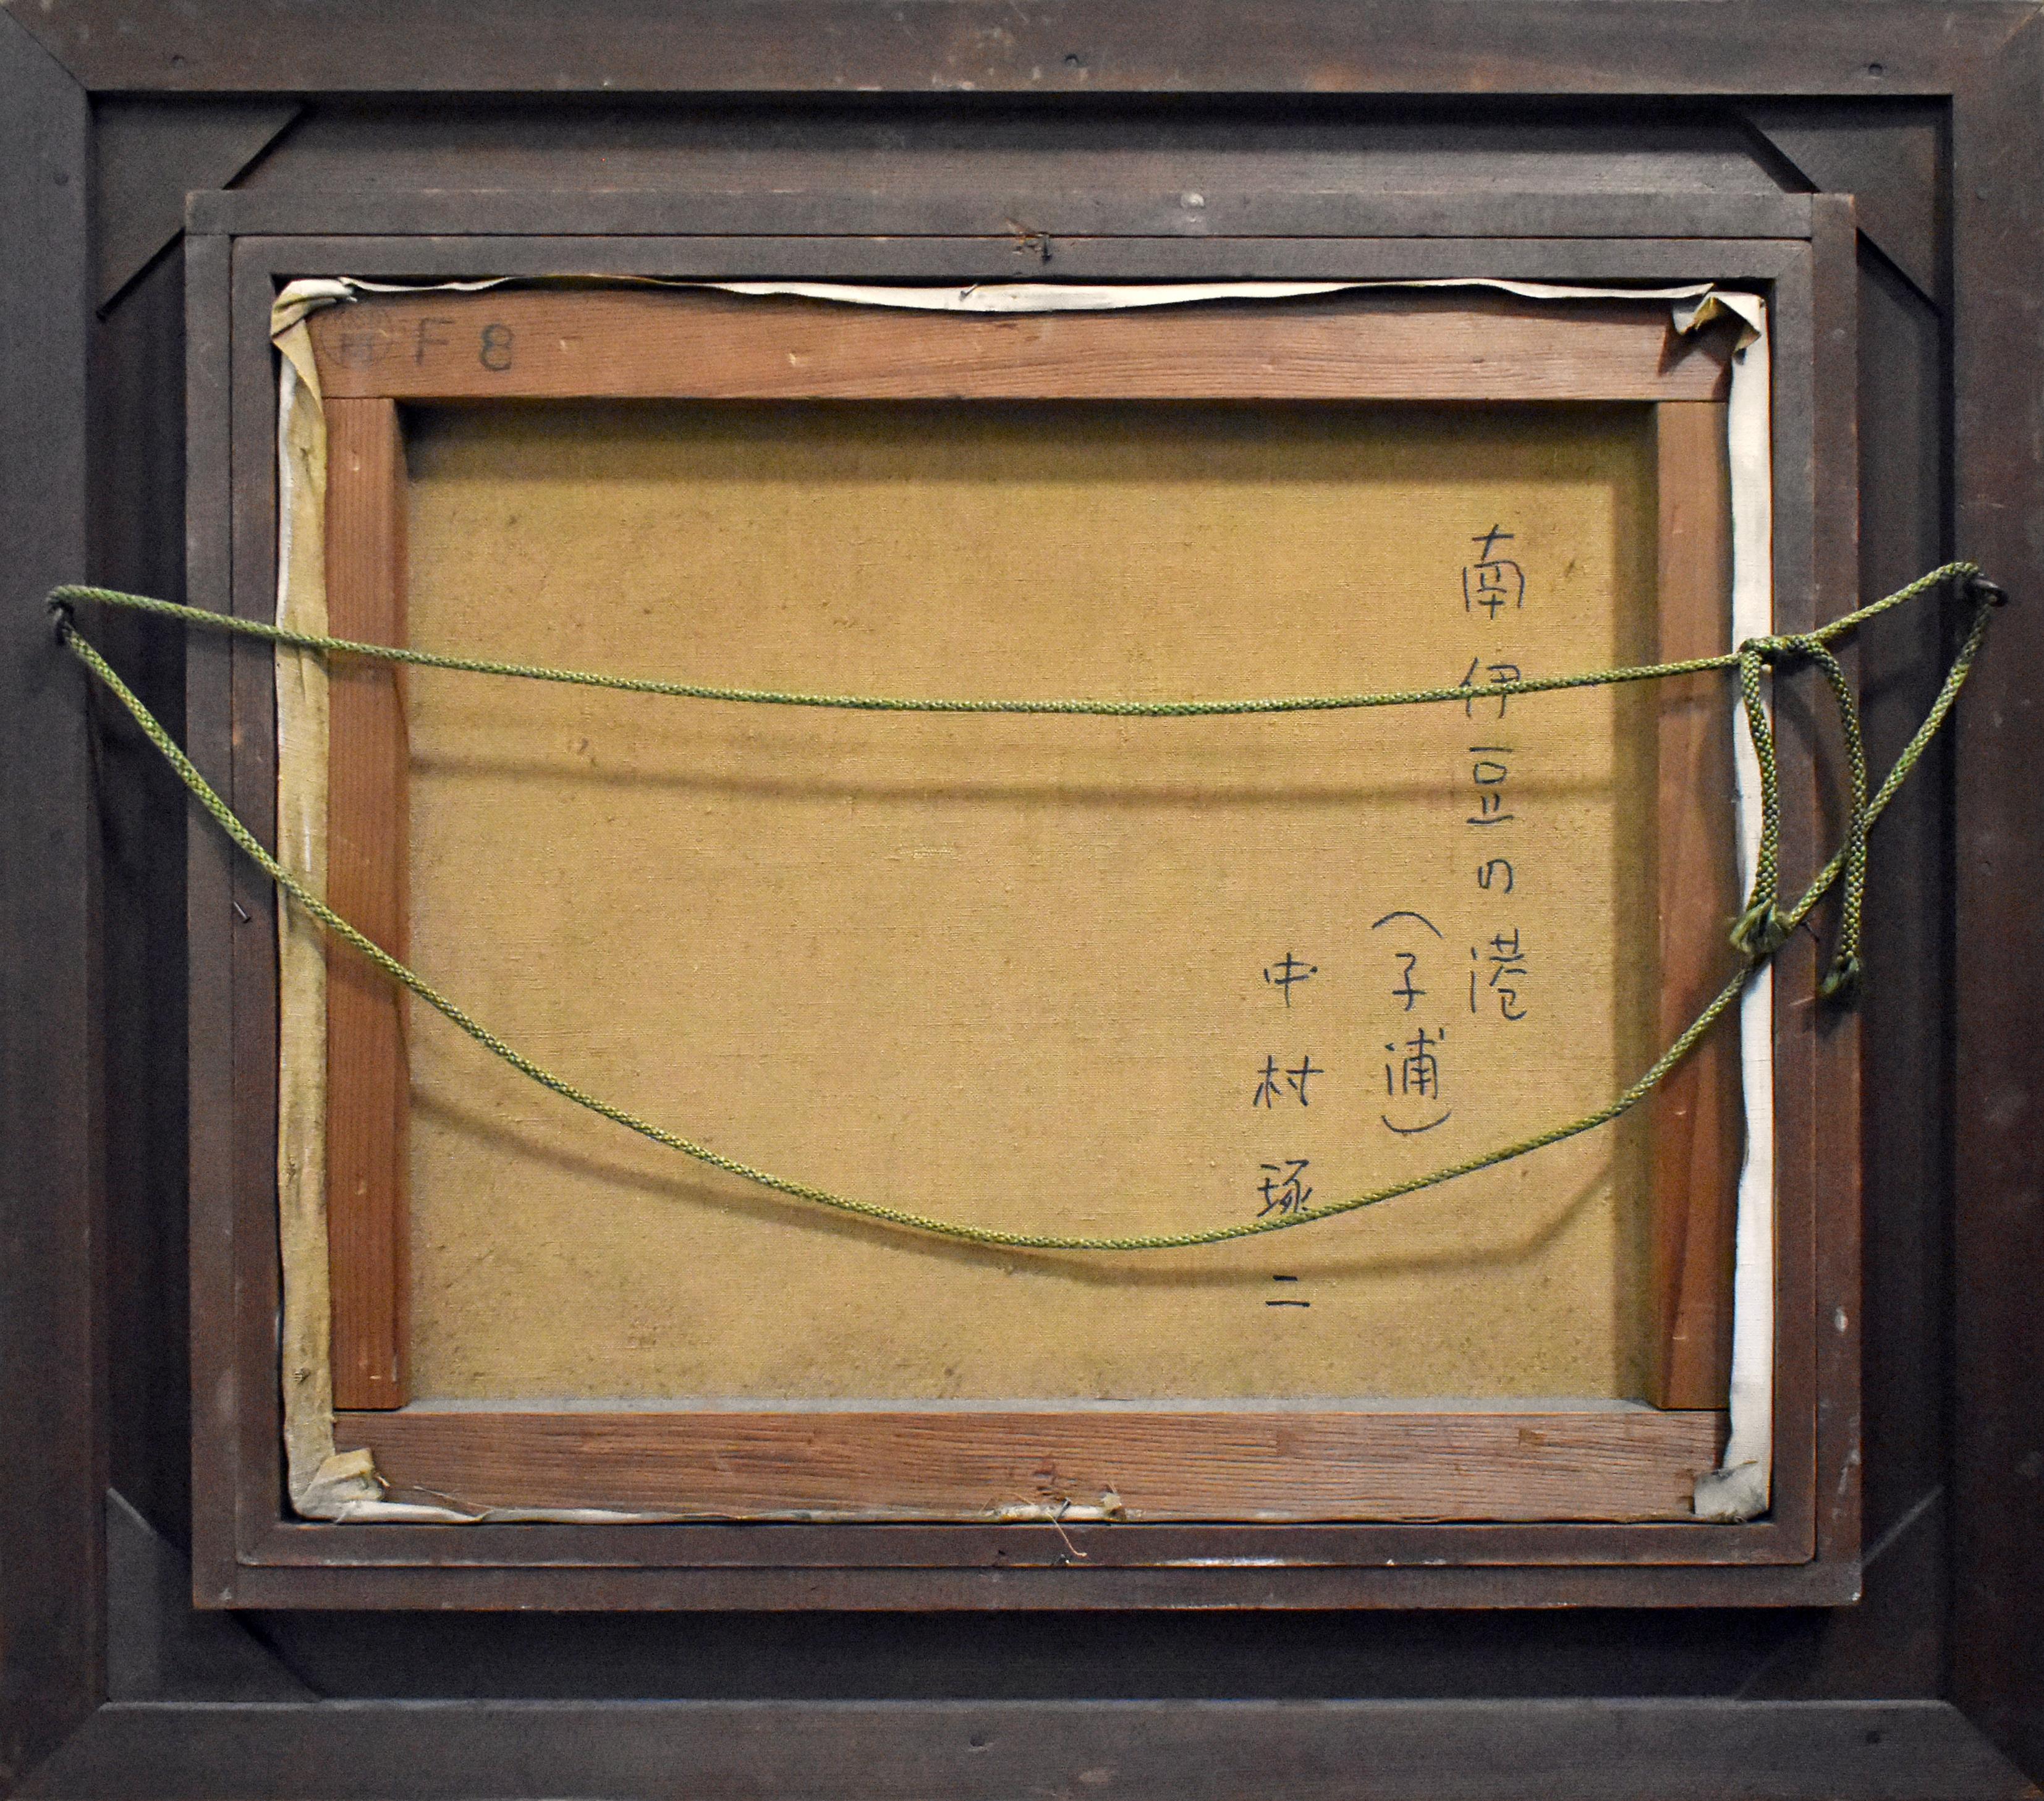 F 8
南伊豆の港
(子浦)
中村琢二